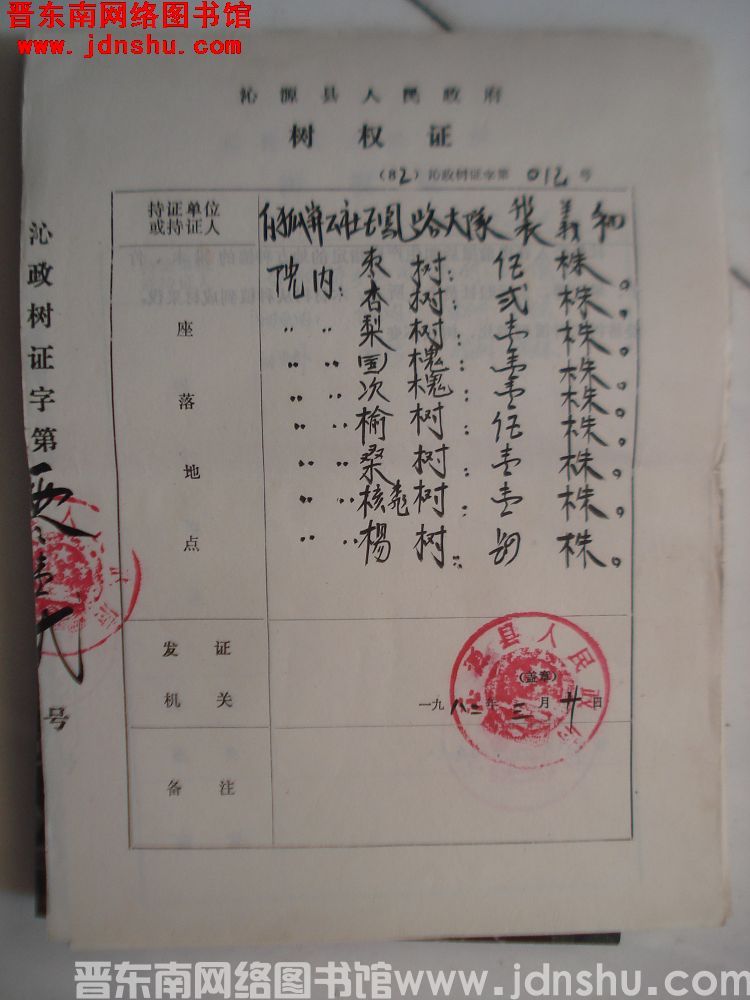 晋东南网络图书馆
www.jdnshu.com
沁源县人民政府
树权证
(82)沁政树证字第 012 号
持证单位
或持证人
自狐窯公社石乱路大隊 裴義和
座落地点
院内: 枣树: 伍株。
〃 〃 杏树: 弍株。
〃 〃 梨树: 壹株。
〃 〃 国槐: 壹株。
〃 〃 次槐: 壹株。
〃 〃 榆树: 伍株。
〃 〃 桑树: 壹株。
〃 〃 核桃树: 壹株。
〃 〃 楊树: 株。
发证
机关
县人民政
(盖章)
一九八二年三月廿日
备注
沁政树证字第
号
晋东南网络图书馆www.jdnshu.com